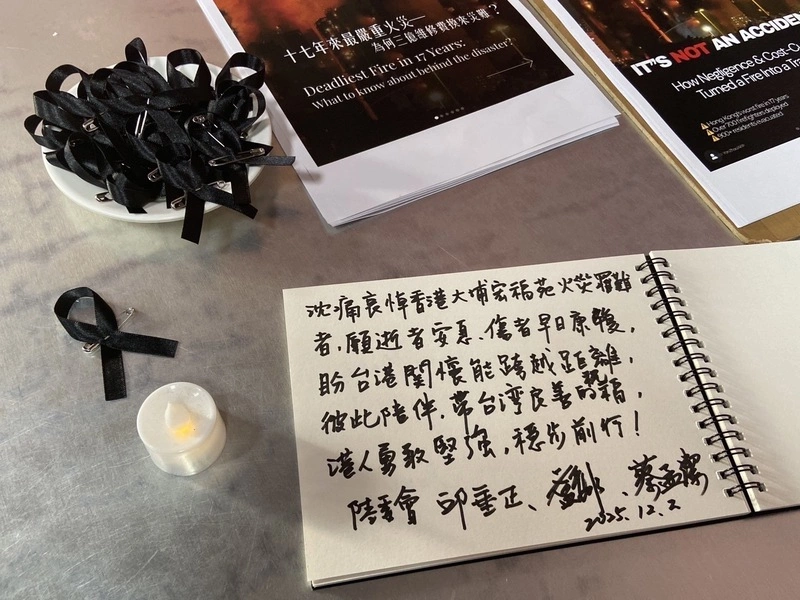 十七年來最嚴重火災—
為何三億維修費換來災難？
Deadliest Fire in 17 Years:
What to know about behind the disaster?
IT'S NOT AN ACCIDEN
How Negligence & Cost-Cu
Turned a Fire Into a Tra
Hong Kong's worst fire in 17 years
Over 700 firefighters deployed
沈痛哀悼香港大埔宏福苑火災罹難
者，願逝者安息、傷者早日康復，
盼台港關懷能跨越距離，
彼此陪伴，帶台湾良善的熱情，
港人勇敢堅強，穩步前行！
陸委會 邱垂正、
、蔡孟潔
2025.12.2